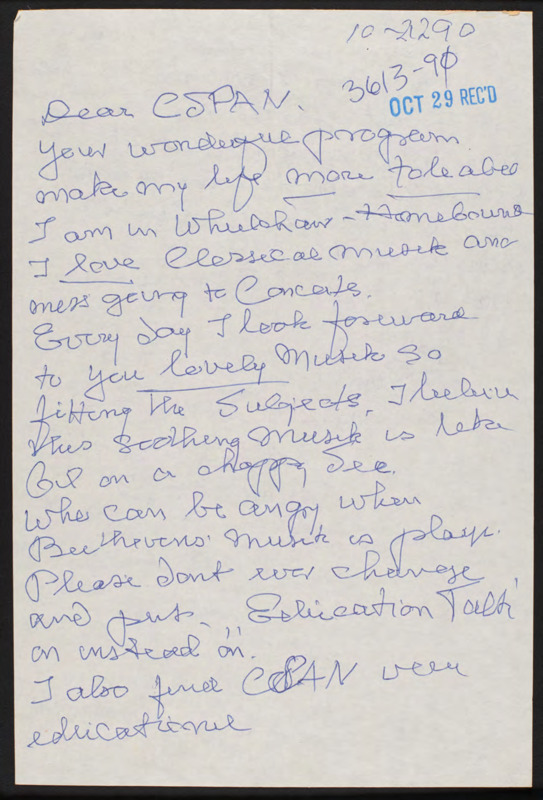 10-2290
3613-90
OCT 29 REC'D
Dear CSPAN.
Your wonderful program
make my life more toleabel
I am in Whulshair - Homebound
I love Classical Musik and
mess going to Concerts.
Every day I look foreward
to you lovely Musik so
fitting the Subjects. I beleive
this soothing Musik is like
Oil on a choppy See.
Who can be angry when
Beethevens' Musik is playt.
Please dont ever change
and put " Education Talk"
on instead
I also find CSPAN very
educational